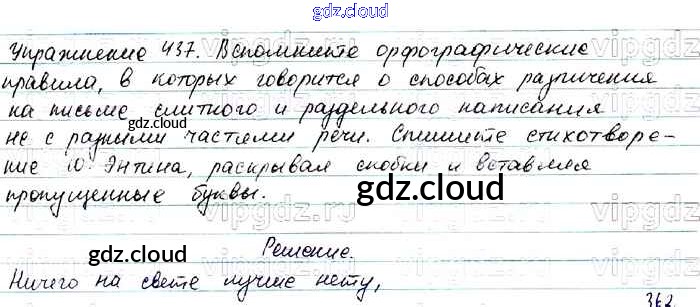 gdz.cloud
Упражнение 437. Вспомните орфографические
правила, в которых говорится о способах различения
на письме слитного и раздельного написания
gdz.cloud
не с разными частями речи. Спишите стихотворе-
ние Ю. Энтина, раскрывая скобки и вставляя
пропущенные буквы.
gdz.cloud
gdz.cloud
Решение.
Ничего на свете лучше нету,
362